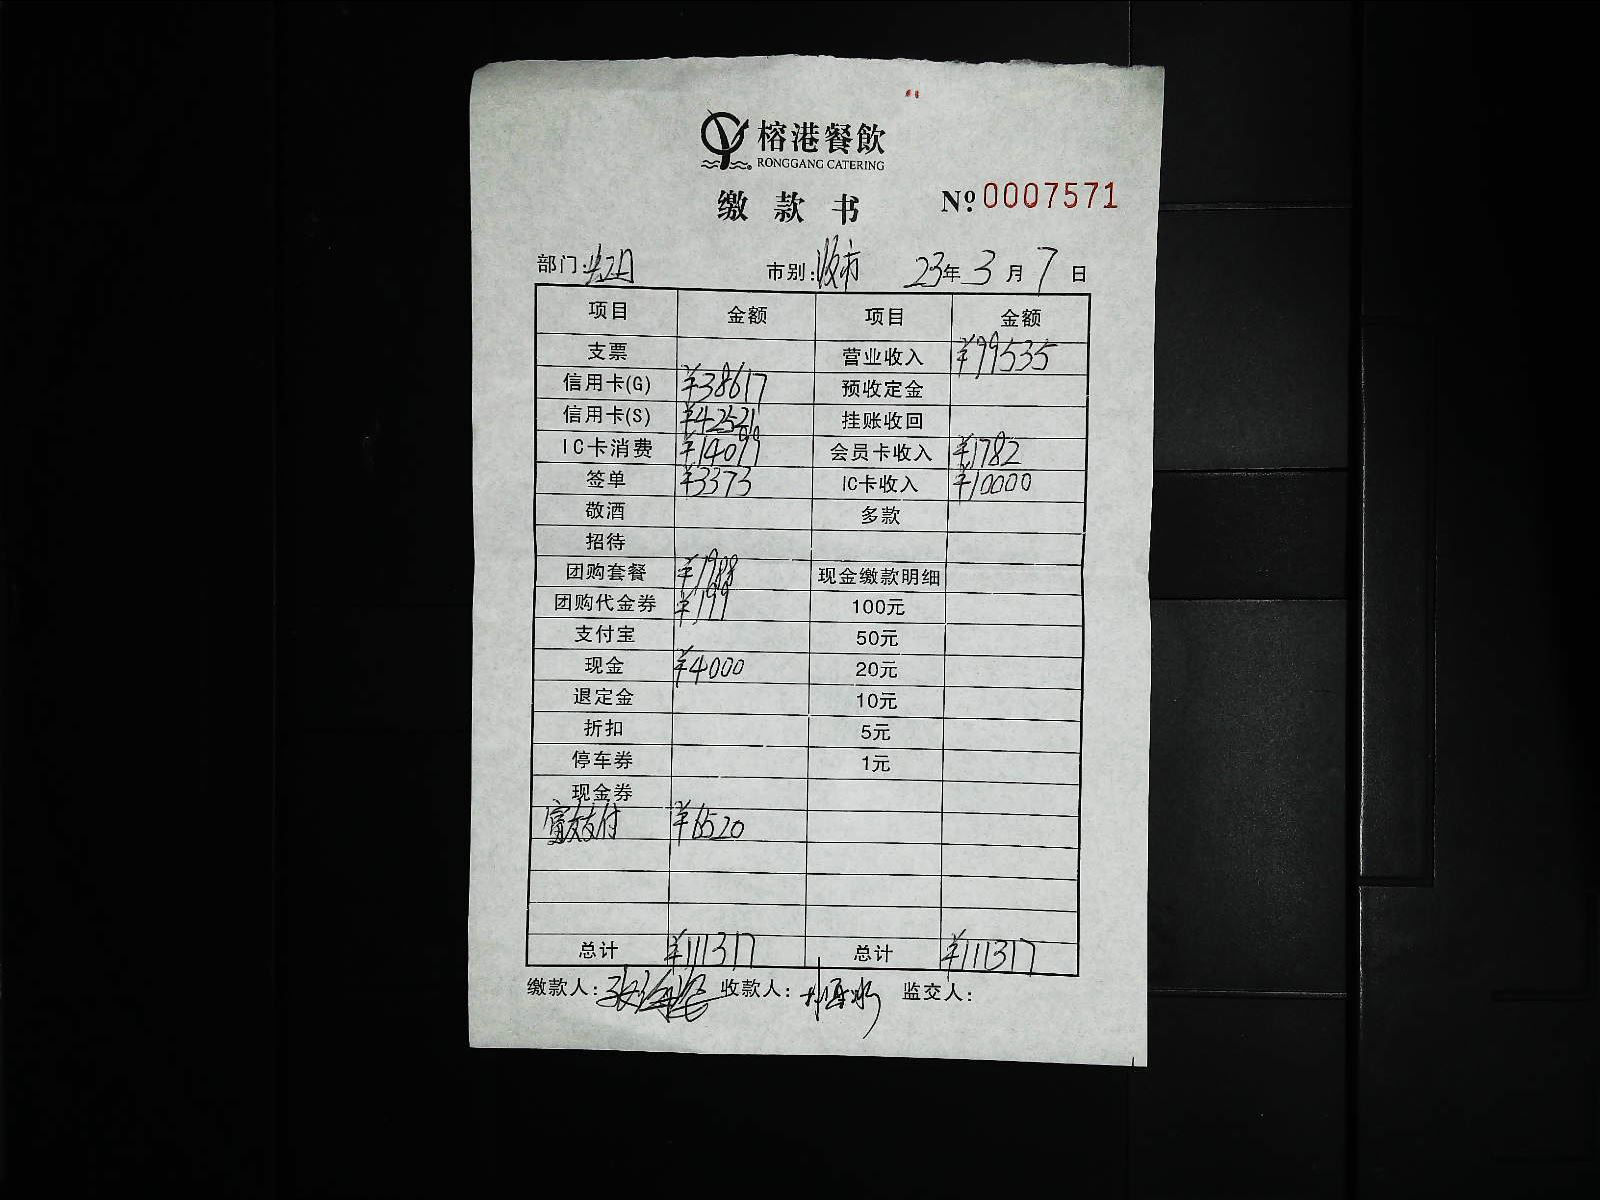 榕港餐飲
RONGGANG CATERING
缴款书 Nº 0007571
部门: 市别:夜市 23年3月7日
项目 金额 项目 金额
支票 营业收入 ¥99535
信用卡(G) ¥38617 预收定金
信用卡(S) ¥42521 挂账收回
IC卡消费 ¥14099 会员卡收入 ¥1782
签单 ¥3373 IC卡收入 ¥10000
敬酒 多款
招待
团购套餐 ¥1988 现金缴款明细
团购代金券 ¥199 100元
支付宝 50元
现金 ¥4000 20元
退定金 10元
折扣 5元
停车券 1元
现金券
富友支付 ¥6520
总计 ¥111317 总计 ¥111317
缴款人: 收款人: 监交人: